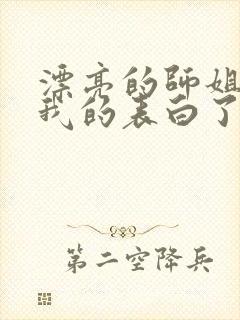 漂亮的師姐
我的表白了
第二空降兵